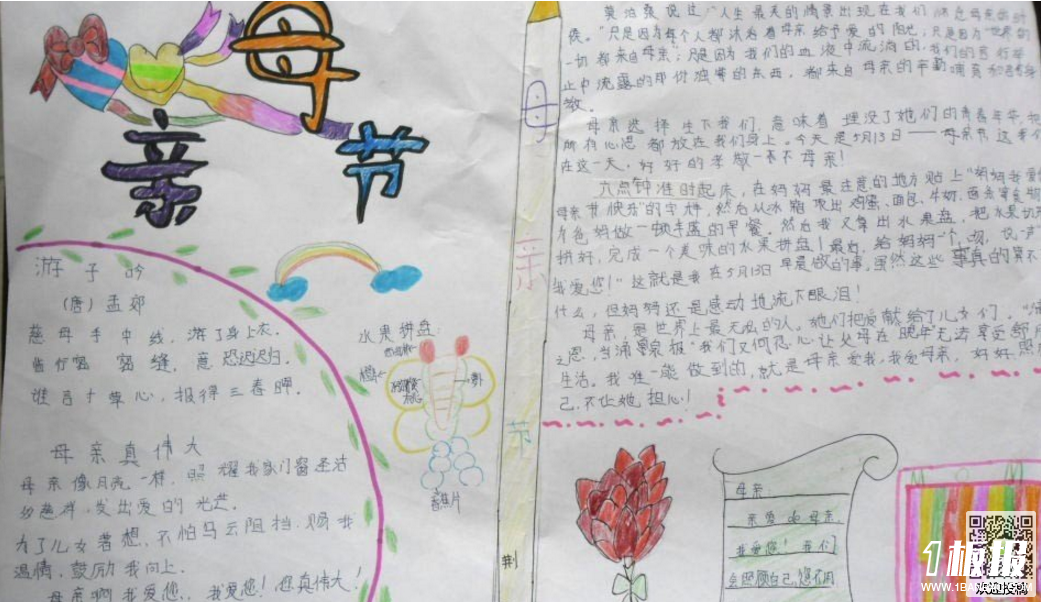 母
亲
节
游子吟
(唐)孟郊
慈母手中线，游子身上衣。
临行密密缝，意恐迟迟归。
谁言寸草心，报得三春晖。
母亲真伟大
母亲像月亮一样，照耀我家门窗圣洁
多慈祥，发出爱的光芒。
为了儿女着想，不怕乌云阻挡，赐我
温情，鼓励我向上。
母亲啊我爱您，我爱您！您真伟大！
水果拼盘：
香蕉片
母
亲
节
莫泊桑说过“人生最美的情景出现在我们
候。”只是因为每个人都沐浴着母亲给予爱的阳光；只是因为“世界的
一切都来自母亲”；只是因为我们的血液中流淌的，我们的言行举
止中流露的甲付独带的东西，都来自母亲的辛勤
教。
母亲选择生下我们，意味着埋没了她们的青春年华，把
所有心思都放在我们身上。今天是5月13日——母亲节这
在这一天，好好的孝敬一下下母亲！
六点钟准时起床，在妈妈最注意的地方贴上“妈妈我爱
母亲节快乐”的字样，然后从冰箱取出鸡蛋、面包、牛奶、
爸妈做一顿丰盛的早餐。然后我又拿出水果盘，把水果切
拼好，完成一个美味的水果拼盘！最后，给妈妈一个吻，说一声
我爱您！”这就是我在5月13日早晨做的事，虽然这些事真的算不
什么，但妈妈还是感动地流下眼泪！
母亲，是世界上最无私的人。她们把爱献给了儿女们。
之恩，当涌泉报”我们又何忍心让父母在晚年无法享受舒
生活。我唯一能做到的，就是母亲爱我，我爱母亲，好好照
己，不让她担心！
母亲：
亲爱do母亲，
我爱您！我们
会照顾自己
1板报
WWW.1BANBAO.COM